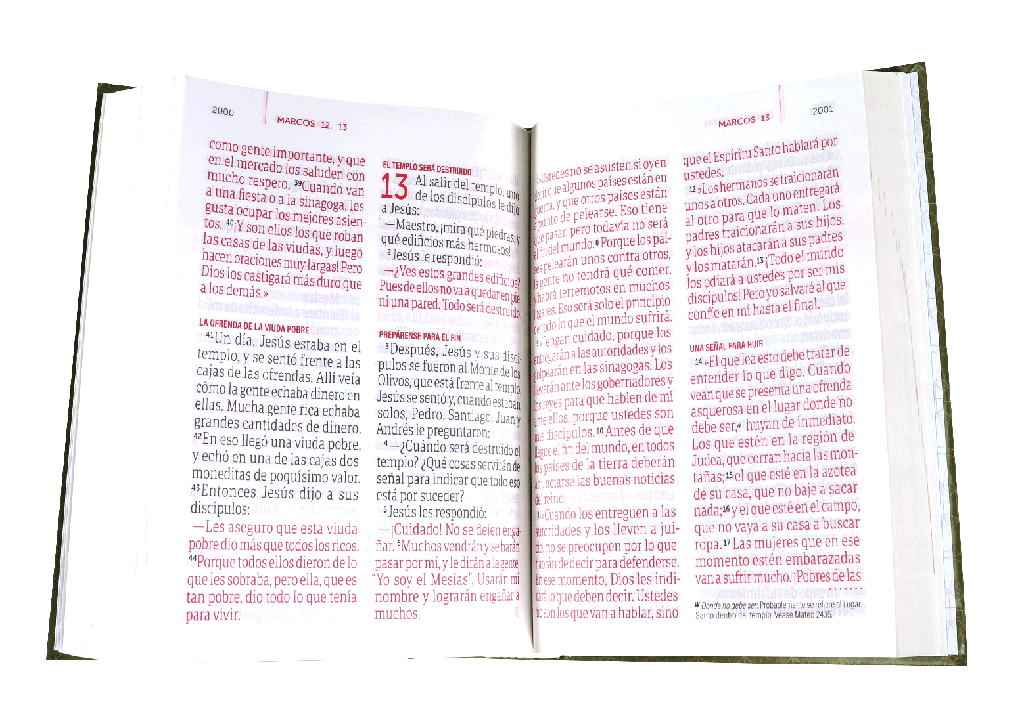 2000
MARCOS 12, 13
como gente importante, y que
en el mercado los saluden con
mucho respeto. 39Cuando van
a una fiesta o a la sinagoga, les
gusta ocupar los mejores asien-
tos. 40¡Y son ellos los que roban
las casas de las viudas, y luego
hacen oraciones muy largas! Pero
Dios los castigará más duro que
a los demás.»
LA OFRENDA DE LA VIUDA POBRE
41Un día, Jesús estaba en el
templo, y se sentó frente a las
cajas de las ofrendas. Allí veía
cómo la gente echaba dinero en
ellas. Mucha gente rica echaba
grandes cantidades de dinero.
42En eso llegó una viuda pobre,
y echó en una de las cajas dos
moneditas de poquísimo valor.
43Entonces Jesús dijo a sus
discípulos:
—Les aseguro que esta viuda
pobre dio más que todos los ricos.
44Porque todos ellos dieron de lo
que les sobraba, pero ella, que es
tan pobre, dio todo lo que tenía
para vivir.
EL TEMPLO SERÁ DESTRUIDO
13 Al salir del templo, uno
de los discípulos le dijo
a Jesús:
—Maestro, ¡mira qué piedras, y
qué edificios más hermosos!
2Jesús le respondió:
—¿Ves estos grandes edificios?
Pues de ellos no va a quedar en pie
ni una pared. Todo será destruido.
PREPÁRENSE PARA EL FIN
3Después, Jesús y sus discí-
pulos se fueron al Monte de los
Olivos, que está frente al templo.
Jesús se sentó y, cuando estaban
solos, Pedro, Santiago, Juan y
Andrés le preguntaron:
4—¿Cuándo será destruido el
templo? ¿Qué cosas servirán de
señal para indicar que todo eso
está por suceder?
5Jesús les respondió:
—¡Cuidado! No se dejen enga-
ñar. 6Muchos vendrán y se harán
pasar por mí, y le dirán a la gente
"Yo soy el Mesías". Usarán mi
nombre y lograrán engañar a
muchos.
2001
MARCOS 13
»Ustedes no se asusten si oyen
decir que algunos países están en
guerra, y que otros países están
a punto de pelearse. Eso tiene
que pasar, pero todavía no será
el fin del mundo. 8Porque los paí-
ses pelearán unos contra otros,
la gente no tendrá qué comer,
y habrá terremotos en muchos
lugares. Eso será solo el principio
de todo lo que el mundo sufrirá.
»Tengan cuidado, porque los
entregarán a las autoridades y los
golpearán en las sinagogas. Los
llevarán ante los gobernadores y
los reyes para que hablen de mí
ante ellos, porque ustedes son
mis discípulos. 10Antes de que
llegue el fin del mundo, en todos
los países de la tierra deberán
anunciarse las buenas noticias
del reino.
»Cuando los entreguen a las
autoridades y los lleven a jui-
cio, no se preocupen por lo que
habrán de decir para defenderse.
En ese momento, Dios les indi-
cará lo que deben decir. Ustedes
no son los que van a hablar, sino
que el Espíritu Santo hablará por
ustedes.
12»Los hermanos se traicionarán
unos a otros. Cada uno entregará
al otro para que lo maten. Los
padres traicionarán a sus hijos,
y los hijos atacarán a sus padres
y los matarán. 13¡Todo el mundo
los odiará a ustedes por ser mis
discípulos! Pero yo salvaré al que
confíe en mí hasta el final.
UNA SEÑAL PARA HUIR
14»El que lea esto debe tratar de
entender lo que digo. Cuando
vean que se presenta una ofrenda
asquerosa en el lugar donde no
debe ser, huyan de inmediato.
Los que estén en la región de
Judea, que corran hacia las mon-
tañas; 15el que esté en la azotea
de su casa, que no baje a sacar
nada; 16y el que esté en el campo,
que no vaya a su casa a buscar
ropa. 17Las mujeres que en ese
momento estén embarazadas
van a sufrir mucho. ¡Pobres de las
Donde no debe ser: Probablemente se refiere al Lugar
Santo dentro del templo. Véase Mateo 24.15.